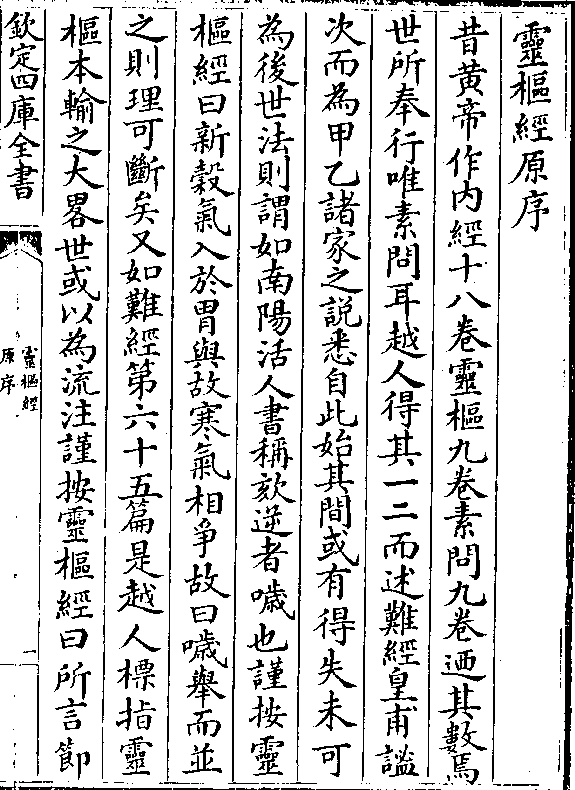 靈樞經原序
昔黄帝作内經十八卷靈樞九卷素問九卷迺其數焉
世所奉行唯素問耳越人得其一二而述難經皇甫謐
次而為甲乙諸家之說悉自此始其間或有得失未可
為後世法則謂如南陽活人書稱欬逆者噦也謹按靈
樞經曰新穀氣入於胃與故寒氣相爭故曰噦舉而並
之則理可斷矣又如難經第六十五篇是越人標指靈
樞本輸之大畧世或以為流注謹按靈樞經曰所言節
欽定四庫全書
靈樞經
原序
一